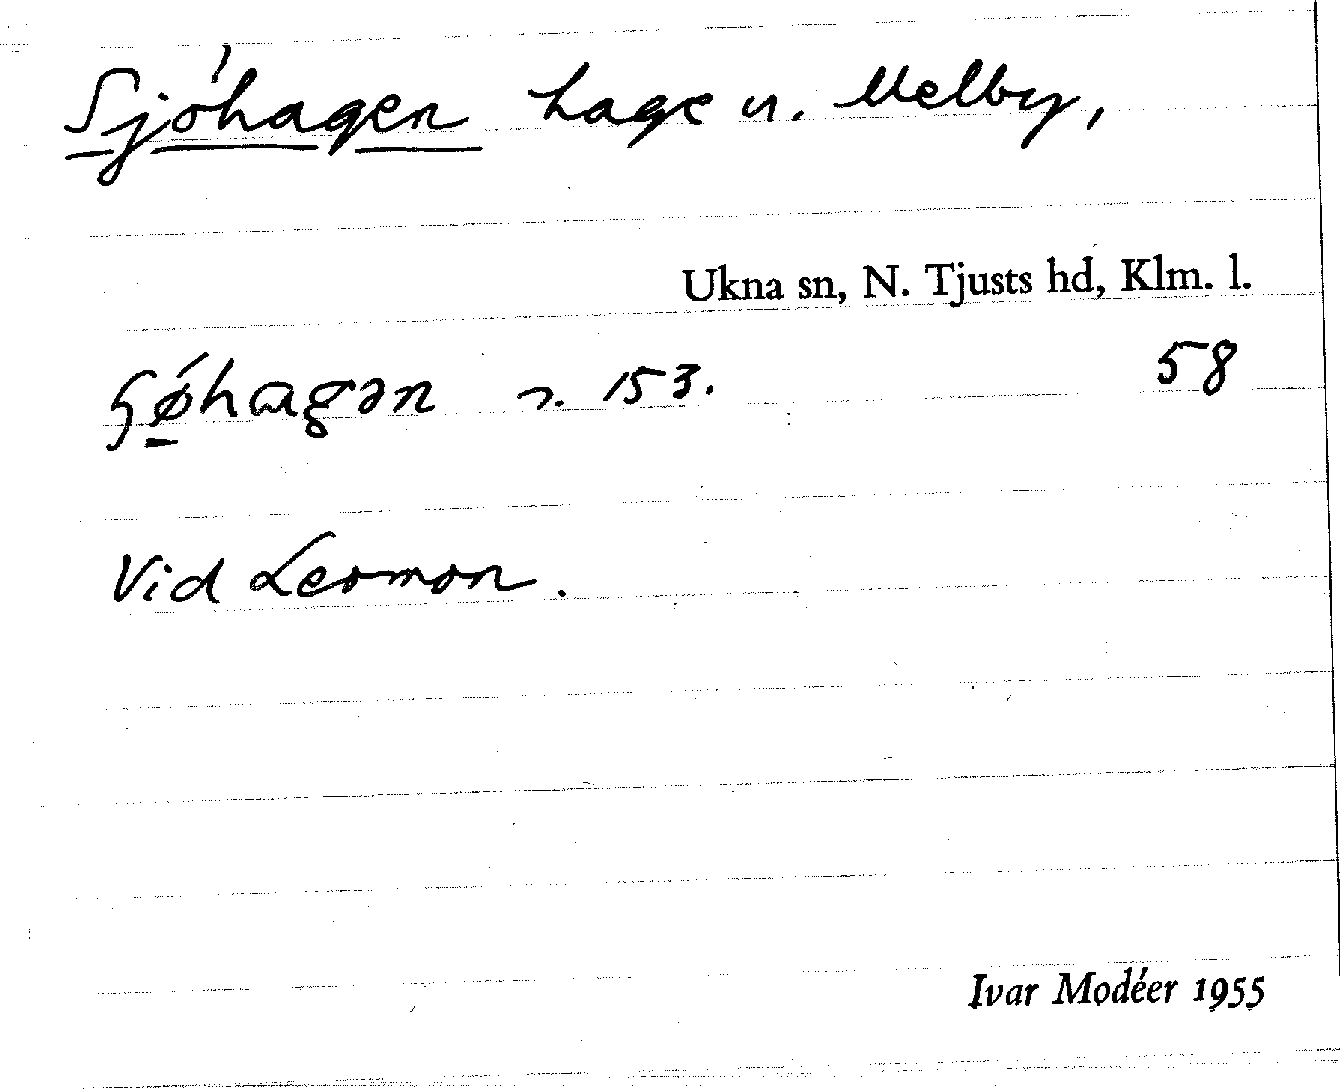 Sjöhagen hage u. Melby,
Ukna sn, N. Tjusts hd, Klm. l.
153. 58
Vid Lermon.
Ivar Modéer 1955